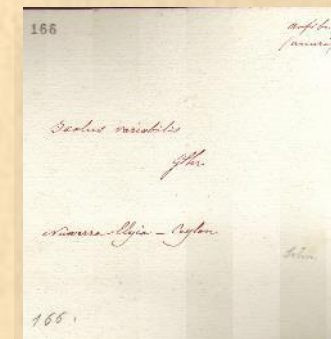 166
Ixalus variabilis
Gthr.
Nuwerra Ellyia - Ceylon
166.